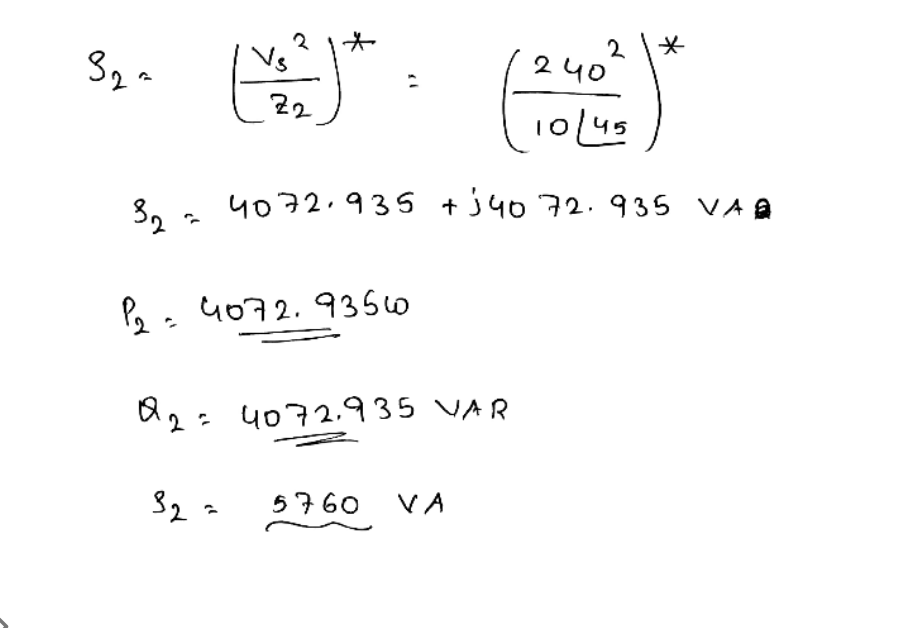 S₂ = (Vs² / Z₂)* = (240² / 10∠45)*
S₂ = 4072.935 + j4072.935 VA
P₂ = 4072.935W
Q₂ = 4072.935 VAR
S₂ = 5760 VA